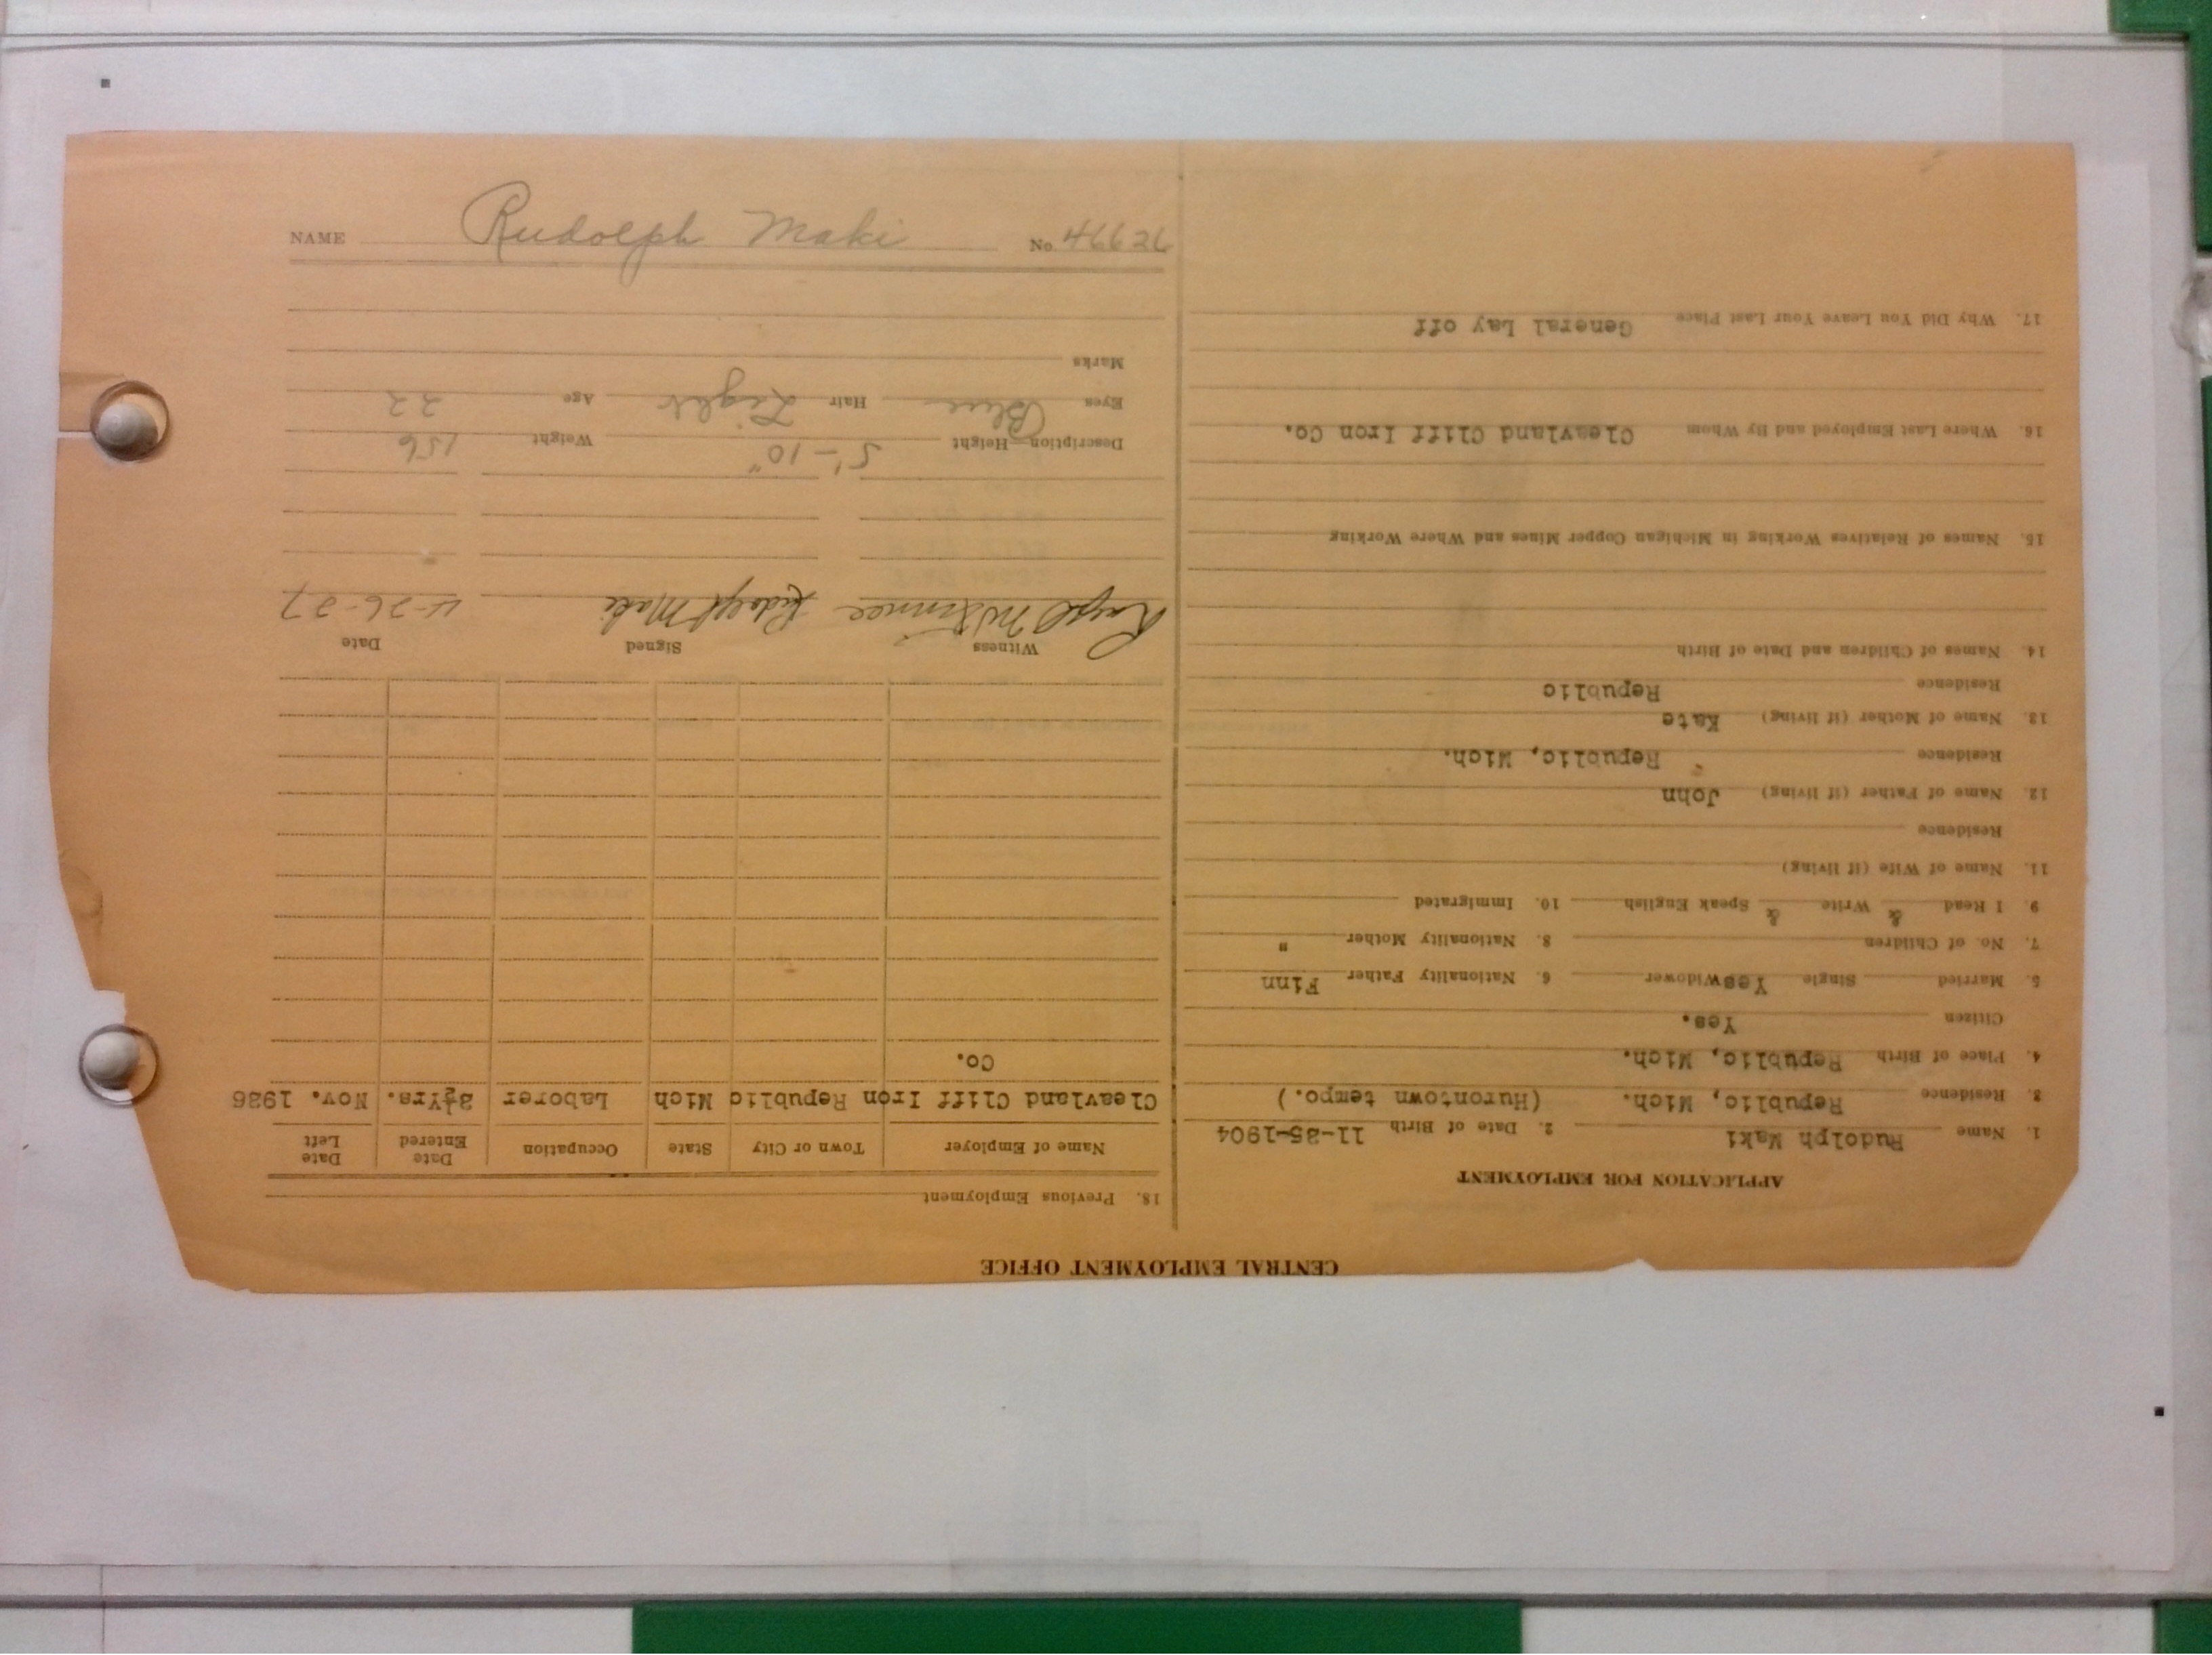 CENTRAL EMPLOYMENT OFFICE
APPLICATION FOR EMPLOYMENT
1. Name Rudolph Maki 2. Date of Birth 11-25-1904
3. Residence Republic, Mich. (Hurontown tempo.)
4. Place of Birth Republic, Mich.
Citizen Yes.
5. Married Single Yes Widower 6. Nationality Father Finn
7. No. of Children 8. Nationality Mother "
9. I Read & Write & Speak English 10. Immigrated
11. Name of Wife (if living)
Residence
12. Name of Father (if living) John
Residence Republic, Mich.
13. Name of Mother (if living) Kate
Residence Republic
14. Names of Children and Date of Birth
15. Names of Relatives Working in Michigan Copper Mines and Where Working
16. Where Last Employed and By Whom Cleavland Cliff Iron Co.
17. Why Did You Leave Your Last Place General Lay off
18. Previous Employment
Name of Employer Town or City State Occupation Date Entered Date Left
Cleavland Cliff Iron Republic Mich Laborer 3½Yrs. Nov. 1926
Co.
Witness Signed Date
Rudolph Maki
Description—Height 5'-10" Weight 156
Eyes Blue Hair Light Age 22
Marks
NAME Rudolph Maki No 46626